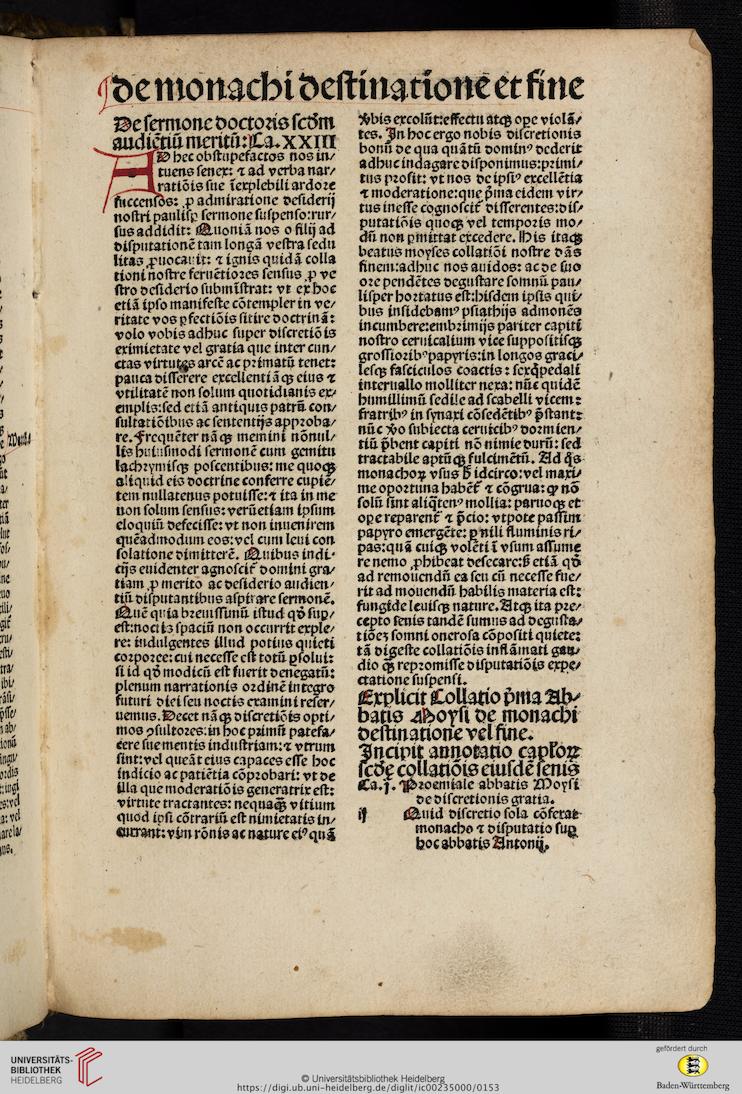 de monachi destinatione et fine
De sermone doctoris scd̄m
audiētiū meritū: Ca. XXIII
AD hec obstupefactos nos in⸗
tuens senex: ⁊ ad verba nar⸗
ratiōis sue īexplebili ardore
succensos: ꝓ admiratione desiderij
nostri paulisꝑ sermone suspenso: rur⸗
sus addidit: Quoniā nos o filij ad
disputationē tam longā vestra sedu
litas ꝓuocauit: ⁊ ignis quidā colla
tioni nostre feruētiores sensus ꝓ ve
stro desiderio subministrat: vt ex hoc
etiā ipso manifeste cōtempler in ve⸗
ritate vos ꝑfectiōis sitire doctrinā:
volo vobis adhuc super discretiōis
eximietate vel gratia que inter cun⸗
ctas virtutes arcē ac primatū tenet:
pauca disserere excellentiāqꝫ eius ⁊
vtilitatē non solum quotidianis ex⸗
emplis: sed etiā antiquis patrū con⸗
sultatiōibus ac sententijs approba⸗
re. Frequēter nāqꝫ memini nōnul⸗
lis huiusmodi sermonē cum gemitu
lachrymisqꝫ poscentibus: me quoqꝫ
aliquid eis doctrine conferre cupiē⸗
tem nullatenus potuisse: ⁊ ita in me
non solum sensus: verūetiam ipsum
eloquiū defecisse: vt non inuenirem
quēadmodum eos: vel cum leui con
solatione dimitterē. Quibus indi⸗
cijs euidenter agnoscit̄ domini gra⸗
tiam ꝓ merito ac desiderio audien⸗
tiū disputantibus aspirare sermonē.
Quē quia breuissimū istud qd̄ suꝑ⸗
est: noctis spaciū non occurrit exple⸗
re: indulgentes illud potius quieti
corporee: cui necesse est totū ꝑsolui:
si id qd̄ modicū est fuerit denegatū:
plenum narrationis ordinē integro
futuri diei seu noctis examini reser⸗
uemus. Decet nāqꝫ discretiōis opti⸗
mos ꝯsultores: in hoc primū patefa⸗
cere sue mentis industriam: ⁊ vtrum
sint: vel queāt eius capaces esse hoc
indicio ac patiētia cōprobari: vt de
illa que moderatiōis generatrix est:
virtute tractantes: nequaqꝫ vitium
quod ipsi cōtrariū est nimietatis in⸗
currant: vim rōnis ac nature eiꝰ quā
v̄bis excolūt: effectu atqꝫ ope violā⸗
tes. In hoc ergo nobis discretionis
bonū de qua quātū dominꝰ dederit
adhuc indagare disponimus: primi⸗
tus prosit: vt nos de ipsiꝰ excellētia
⁊ moderatione: que p̄ma eidem vir⸗
tus inesse cognoscit̄ disserentes: dis⸗
putatiōis quoqꝫ vel temporis mo⸗
dū non ꝑmittat excedere. His itaqꝫ
beatus moyses collatiōi nostre dās
finem: adhuc nos auidos: ac de suo
ore pendētes degustare somnū pau⸗
lisper hortatus est: hisdem ipsis qui⸗
bus insidebamꝰ psiathijs admonēs
incumbere: embrimijs pariter capiti
nostro ceruicalium vice suppositisqꝫ
grossioribꝰ papyris: in longos graci⸗
lesqꝫ fasciculos coactis: sexq̄pedali
interuallo molliter nexa: nūc quidē
humillimū sedile ad scabelli vicem:
fratribꝰ in synaxi cōsedētibꝰ p̄stant:
nūc v̄o subiecta ceruicibꝰ dormien⸗
tiū p̄bent capiti nō nimie durū: sed
tractabile aptūqꝫ fulcimētū. Ad q̄s
monachoꝝ vsus hᷓ idcirco: vel maxi⸗
me oportuna habēt̄ ⁊ cōgrua: ꝙ nō
solū sint aliq̄tenꝰ mollia: paruoqꝫ et
ope reparent̄ ⁊ p̄cio: vtpote passim
papyro emergēte: ꝑ nili fluminis ri⸗
pas: quā cuiqꝫ volēti ī vsum assume
re nemo ꝓhibeat desecare: sꝫ etiā qd̄
ad remouendū ea seu cū necesse fue⸗
rit ad mouendū habilis materia est:
fungide leuisqꝫ nature. Atqꝫ ita pre⸗
cepto senis tandē sumus ad degusta⸗
tiōez somni onerosa cōpositi quiete:
tā digeste collatiōis inflāmati gau⸗
dio qꝫ repromisse disputatiōis expe⸗
ctatione suspensi.
Explicit Collatio p̄ma Ab⸗
batis Moysi de monachi
destinatione vel fine.
Incipit annotatio capl̄oꝝ
scd̄e collatiōis eiusdē senis
Ca. j. Proemiale abbatis Moysi
de discretionis gratia.
ij Quid discretio sola cōferat
monacho ⁊ disputatio suꝑ
hoc abbatis Antonij.
UNIVERSITÄTS-
BIBLIOTHEK
HEIDELBERG
© Universitätsbibliothek Heidelberg
https://digi.ub.uni-heidelberg.de/diglit/ic00235000/0153
gefördert durch
Baden-Württemberg